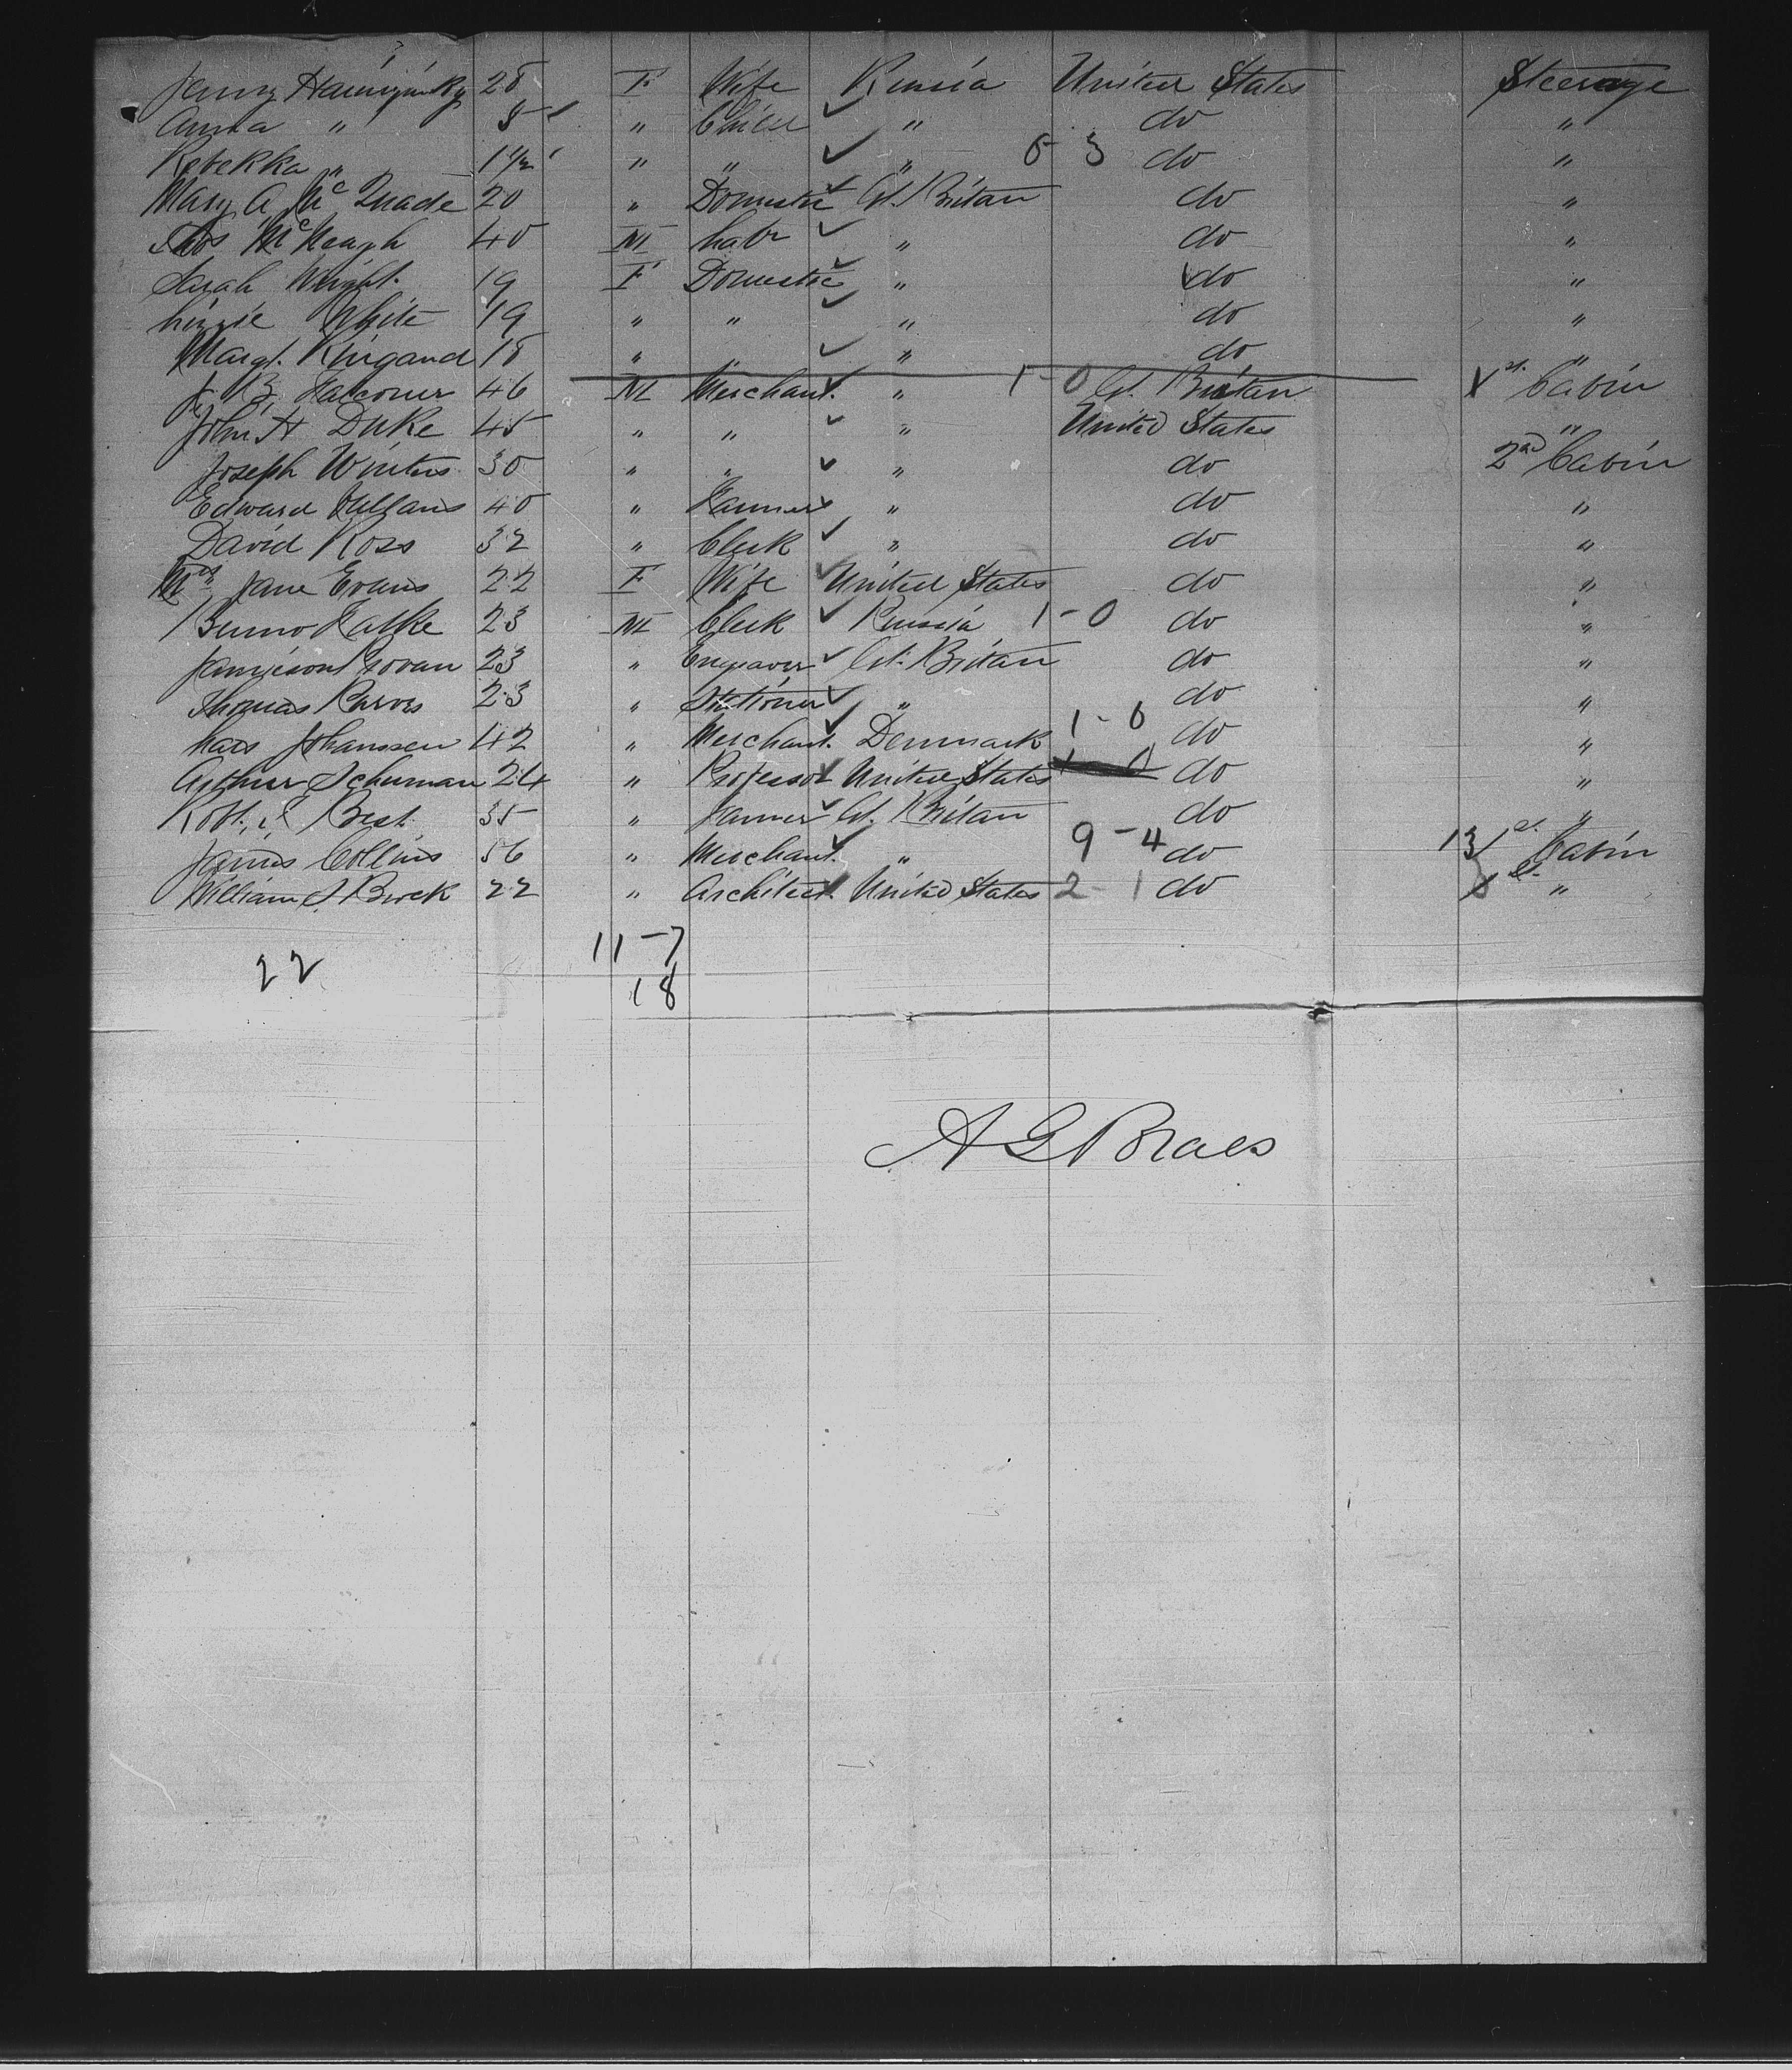 Jenny 28 F Wife Russia United States Steerage
Anna " 8 " Child " do "
Rebekka " 1 1/2 " " " 0 3 do "
Mary A McQuade 20 " Domestic Gt. Britan do "
Thos McNeagh 40 M Labr " do "
Sarah Wright 19 F Domestic " do "
Lizzie White 19 " " " do "
Margt. 18 " " " do "
J. B. Falconer 46 M Merchant. " 1-0 Gt. Britan 1st. Cabin
John H Duke 45 " " " United States "
Joseph Winters 30 " " " do 2nd Cabin
Edward 40 " Farmer " do "
David Ross 32 " Clerk " do "
Mrs Jane Evans 22 F Wife United States do "
Benno 23 M Clerk Russia 1-0 do "
Jamieson Provan 23 " Engraver Gt. Britan do "
Thomas 23 " Stationer " do "
Lars Johanssen 42 " Merchant. Denmark 1-0 do "
Arthur Schuman 24 " Professor United States do "
Robt. Best 35 " Farmer Gt. Britan do "
James Collins 56 " Merchant. " 9-4 do Cabin
William S. Brock 22 " Architect. United States 2-1 do "
22 11-7
18
A G Braes